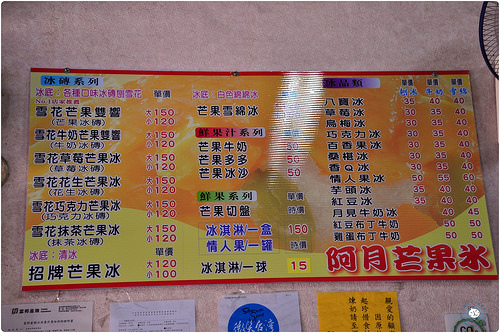 冰磚系列
冰底：各種口味冰磚刨雪花 單價
No.1店家推薦
雪花芒果雙響 大150
(芒果冰磚) 小120
雪花牛奶芒果雙響 大150
(牛奶冰磚) 小120
雪花草莓芒果冰 大150
(草莓冰磚) 小120
雪花花生芒果冰 大150
(花生冰磚) 小120
雪花巧克力芒果冰 大150
(巧克力冰磚) 小120
雪花抹茶芒果冰 大150
(抹茶冰磚) 小120
冰底：清冰 單價
招牌芒果冰 大120
小100
冰底：白色綿綿冰 單價
芒果雪綿冰
鮮果汁系列 單價
芒果牛奶 50
芒果多多 50
芒果冰沙 50
鮮果系列 單價
芒果切盤 時價
冰淇淋/一盒 150
情人果/一罐 時價
冰淇淋/一球 15
冰品類 單價 單價 單價
刨冰 牛奶 雪綿
八寶冰 35 40 40
草莓冰 30 35 40
烏梅冰 30 35 40
巧克力冰 30 35 40
百香果冰 30 35 40
桑椹冰 30 35 40
香Q冰 30 35 40
情人果冰 50 55 60
芋頭冰 35 40 40
紅豆冰 35 40 40
月見牛奶冰 40 45
紅豆布丁牛奶 50 50
雞蛋布丁牛奶 50 50
阿月芒果冰
親愛的顧